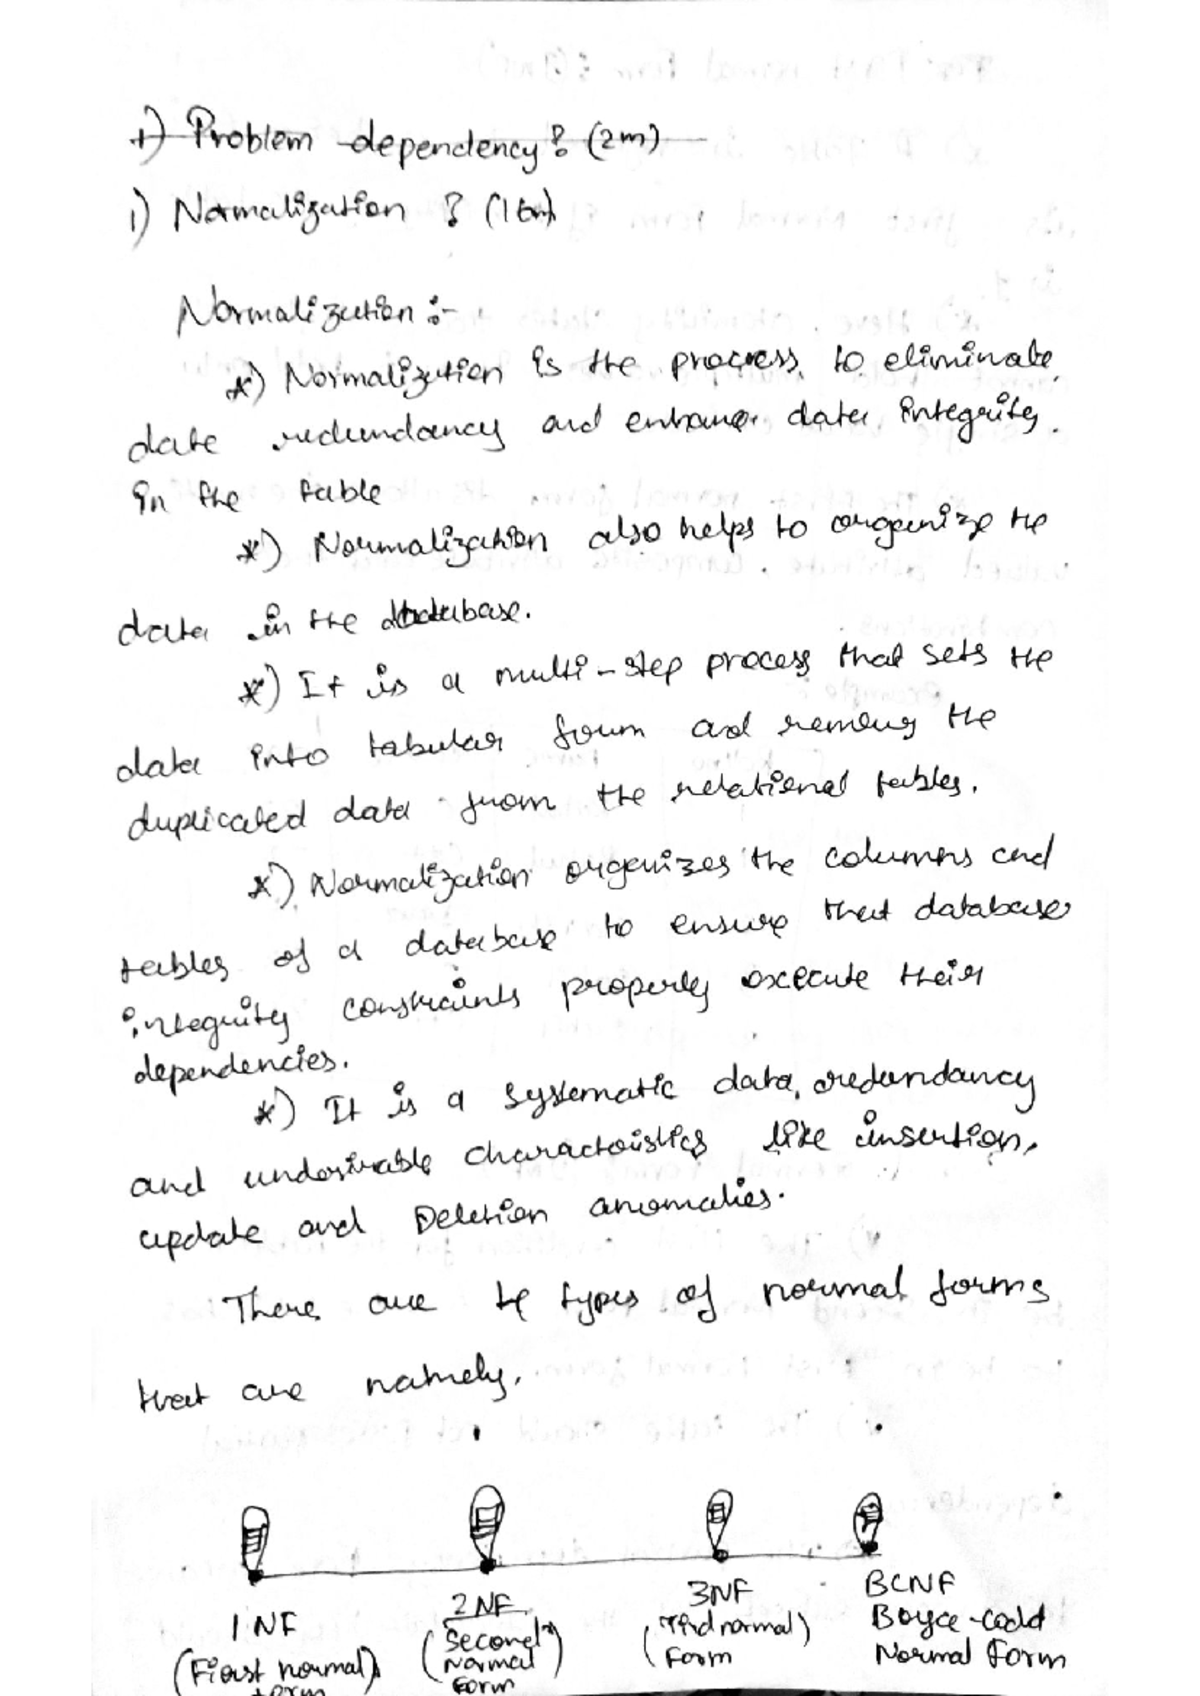 1) Problem dependency? (2m)
1) Normalization? (16m)
Normalization:-
*) Normalization is the process to eliminate
date redundancy and enhance data integrity.
in the table
*) Normalization also helps to organize the
data in the database.
*) It is a multi-step process that sets the
data into tabular form and removes the
duplicated data from the relational tables.
*) Normalization organizes the columns and
tables of a database to ensure that database
integrity constraints properly execute their
dependencies.
*) It is a systematic data redundancy
and undesirable characteristics like insertion,
update and Deletion anomalies.
There are 4 types of normal forms
that are namely,
1NF 2NF 3NF BCNF
(First normal form) (Second Normal Form) (Third normal Form) Boyce-codd Normal form